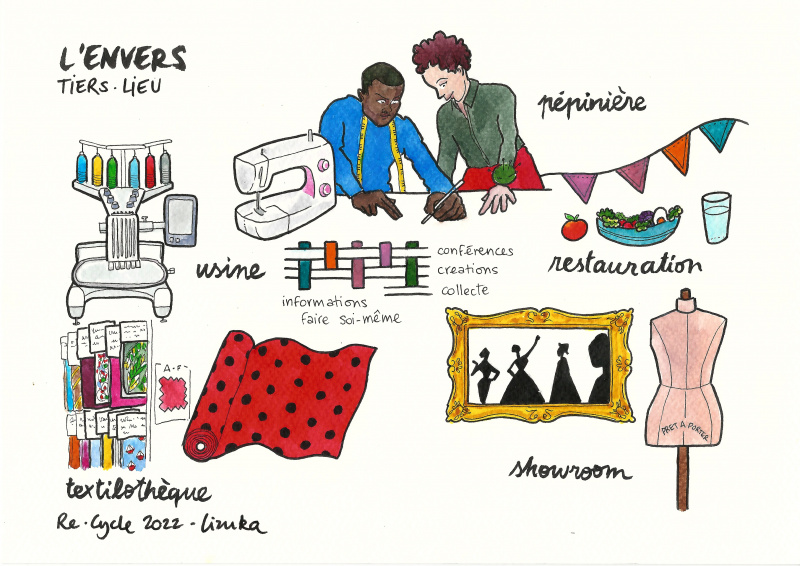 L'ENVERS
TIERS·LIEU
pépinière
usine
conférences
creations
collecte
informations
faire soi-même
restauration
A-F
PRET A PORTER
showroom
textilothèque
Re·Cycle 2022 - limka